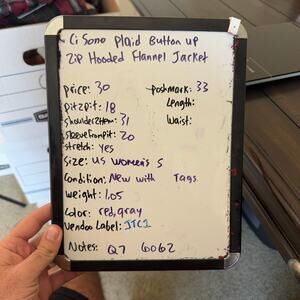 Ci Sono Plaid Button up
Zip Hooded Flannel Jacket
price: 30
poshmark: 33
pit2pit: 18
Length:
shoulder2hem: 31
Waist:
sleevefrompit: 20
stretch: yes
Size: US Women's S
Condition: New with Tags
Weight: 1.05
Color: red, gray
Vendoo Label: JTC1
Notes: Q7 6062